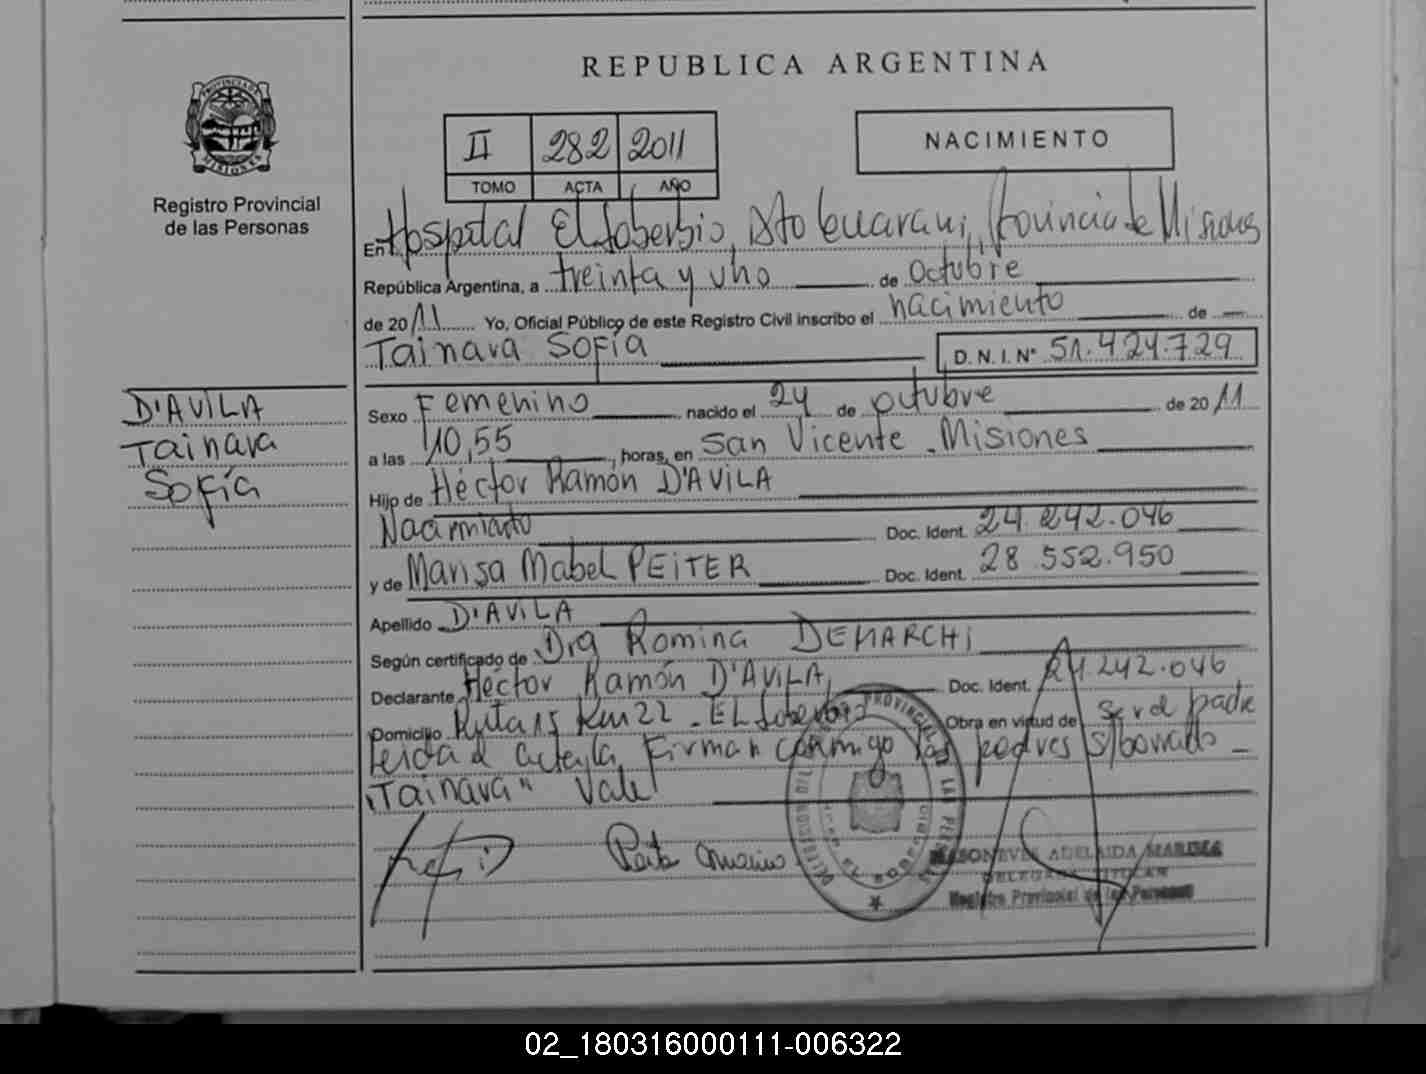 REPUBLICA ARGENTINA
PROVINCIA DE MISIONES
Registro Provincial
de las Personas
II 282 2011
TOMO ACTA AÑO
NACIMIENTO
En Hospital El Soberbio, Dto Guarani, Provincia de Misiones
República Argentina, a treinta y uno de octubre
de 2011 Yo, Oficial Público de este Registro Civil inscribo el nacimiento de
Tainara Sofía D.N.I. Nº 51.424.729
D'AVILA
Tainara
Sofía
Sexo Femenino nacido el 24 de octubre de 2011
a las 10,55 horas, en San Vicente - Misiones
Hijo de Héctor Ramón D'AVILA
Nacimiento Doc. Ident. 24.242.046
y de Marisa Mabel PEITER Doc. Ident. 28.552.950
Apellido D'AVILA
Según certificado de Dra Romina DEMARCHI
Declarante Héctor Ramón D'AVILA, Doc. Ident. 24.242.046
Domicilio Ruta 15 Km 22 - EL Soberbio Obra en virtud de ser el padre
Leida el acta, la Firman conmigo los padres s/borrado -
"Tainara" Vale
ADELAIDA
DELEGADA TITULAR
Registro Provincial de las Personas
02_180316000111-006322